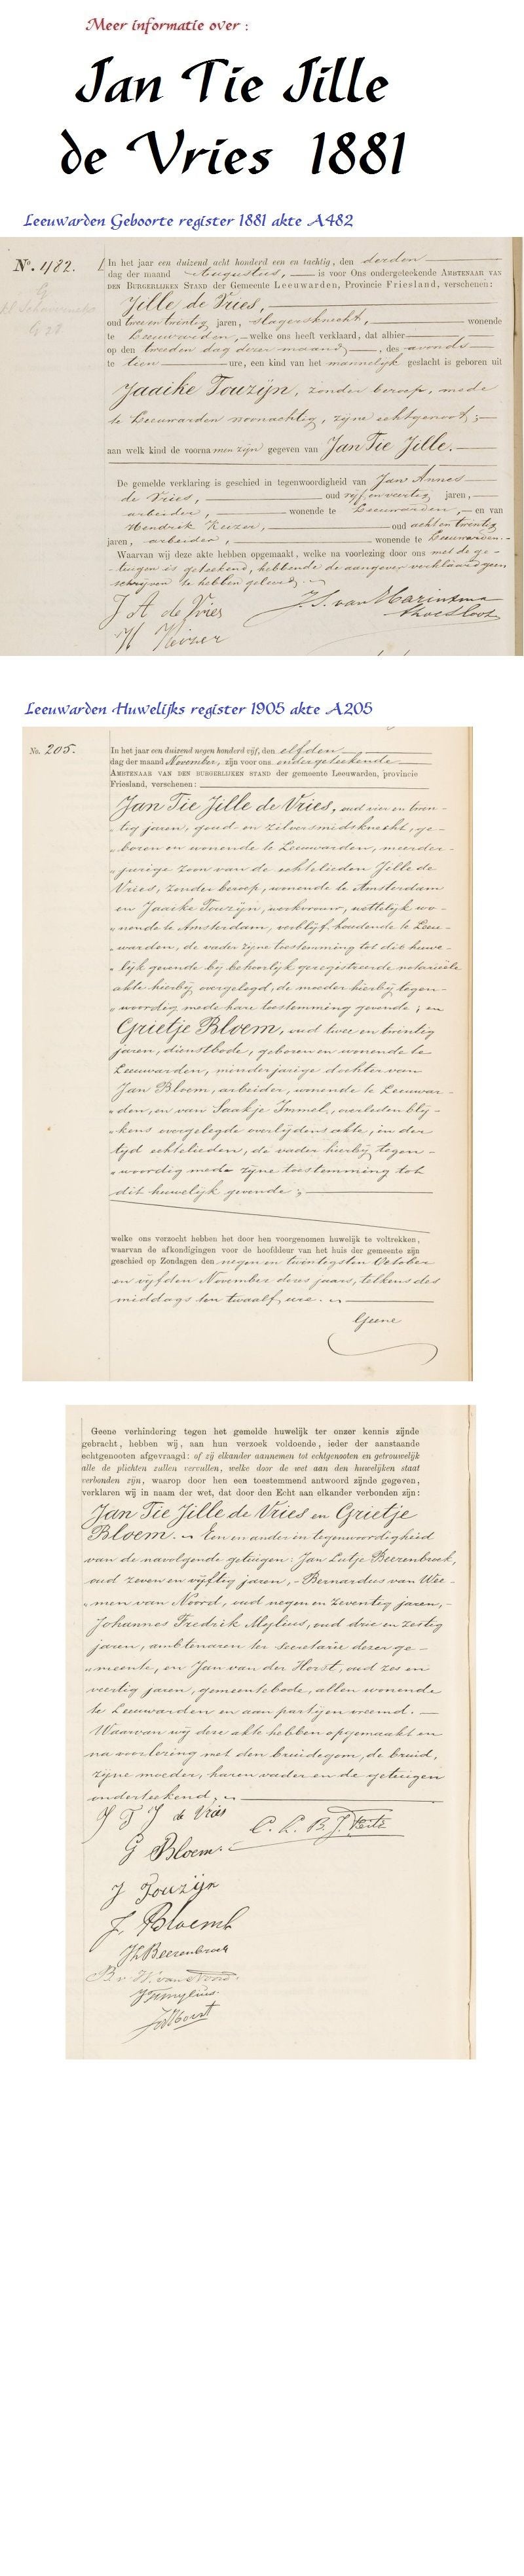 Meer informatie over :
Jan Tie Jille
de Vries 1881
Leeuwarden Geboorte register 1881 akte A482
No. 482. In het jaar een duizend acht honderd een en tachtig, den derden
dag der maand Augustus, is voor Ons ondergeteekende Ambtenaar van
den Burgerlijken Stand der Gemeente Leeuwarden, Provincie Friesland, verschenen:
Jille de Vries,
oud twee en twintig jaren, slagersknecht, wonende
te Leeuwarden, welke ons heeft verklaard, dat alhier
op den tweeden dag dezer maand, des avonds
te tien ure, een kind van het mannelijk geslacht is geboren uit
Jaaike Touzijn, zonder beroep, mede
te Leeuwarden woonachtig, zijne echtgenoot;
aan welk kind de voornamen zijn gegeven van Jan Tie Jille.
De gemelde verklaring is geschied in tegenwoordigheid van Jan Annes
de Vries, oud vijf en veertig jaren,
arbeider, wonende te Leeuwarden, en van
Hendrik Keizer, oud acht en twintig
jaren, arbeider, wonende te Leeuwarden.
Waarvan wij deze akte hebben opgemaakt, welke na voorlezing door ons met de ge-
tuigen is geteekend, hebbende de aangever verklaard geen
schrijven te hebben geleerd.
J A de Vries J. S. van Harinxma
H Keizer thoe Slooten
Leeuwarden Huwelijks register 1905 akte A205
No. 205. In het jaar een duizend negen honderd vijf, den elfden
dag der maand November, zijn voor ons ondergeteekende
Ambtenaar van den burgerlijken stand der gemeente Leeuwarden, provincie
Friesland, verschenen:
Jan Tie Jille de Vries, oud vier en twin-
tig jaren, goud en zilversmidsknecht, ge-
boren en wonende te Leeuwarden, meerder-
jarige zoon van de echtelieden Jille de
Vries, zonder beroep, wonende te Amsterdam
en Jaaike Touzijn, werkvrouw, wettelijk wo-
nende te Amsterdam, verblijfhoudende te Leeu-
warden, de vader zijne toestemming tot dit huwe-
lijk gevende bij behoorlijk geregistreerde notariëele
akte hierbij overgelegd, de moeder hierbij tegen-
woordig mede hare toestemming gevende; en
Grietje Bloem, oud twee en twintig
jaren, dienstbode, geboren en wonende te
Leeuwarden, minderjarige dochter van
Jan Bloem, arbeider, wonende te Leeuwar-
den, en van Saakje Immel, overleden blij-
kens overgelegde overlijdens akte, in der
tijd echtelieden, de vader hierbij tegen-
woordig mede zijne toestemming tot
dit huwelijk gevende;
welke ons verzocht hebben het door hen voorgenomen huwelijk te voltrekken,
waarvan de afkondigingen voor de hoofddeur van het huis der gemeente zijn
geschied op Zondagen den negen en twintigsten October
en vijfden November dezes jaars, telkens des
middags ten twaalf ure.
Geene
Geene verhindering tegen het gemelde huwelijk ter onzer kennis zijnde
gebracht, hebben wij, aan hun verzoek voldoende, ieder der aanstaande
echtgenooten afgevraagd: of zij elkander aannemen tot echtgenooten en getrouwelijk
alle de plichten zullen vervullen, welke door de wet aan den huwelijken staat
verbonden zijn, waarop door hen een toestemmend antwoord zijnde gegeven,
verklaren wij in naam der wet, dat door den Echt aan elkander verbonden zijn:
Jan Tie Jille de Vries en Grietje
Bloem. Een en ander in tegenwoordigheid
van de navolgende getuigen: Jan Lutje Beerenbroek,
oud zeven en vijftig jaren, Bernardus van Wee-
men van Noord, oud negen en zeventig jaren,
Johannes Fredrik Mylius, oud drie en zestig
jaren, ambtenaren ter secretarie dezer ge-
meente, en Jan van der Horst, oud zes en
veertig jaren, gemeentebode, allen wonende
te Leeuwarden en aan partijen vreemd.
Waarvan wij deze akte hebben opgemaakt en
na voorlezing met den bruidegom, de bruid,
zijne moeder, haren vader en de getuigen
onderteekend,
J T J de Vries C. L. B. J.
G Bloem.
J Touzijn
J. Bloem
JLBeerenbroek
B. v. W. van Noord.
JFMylius.
JvdHorst